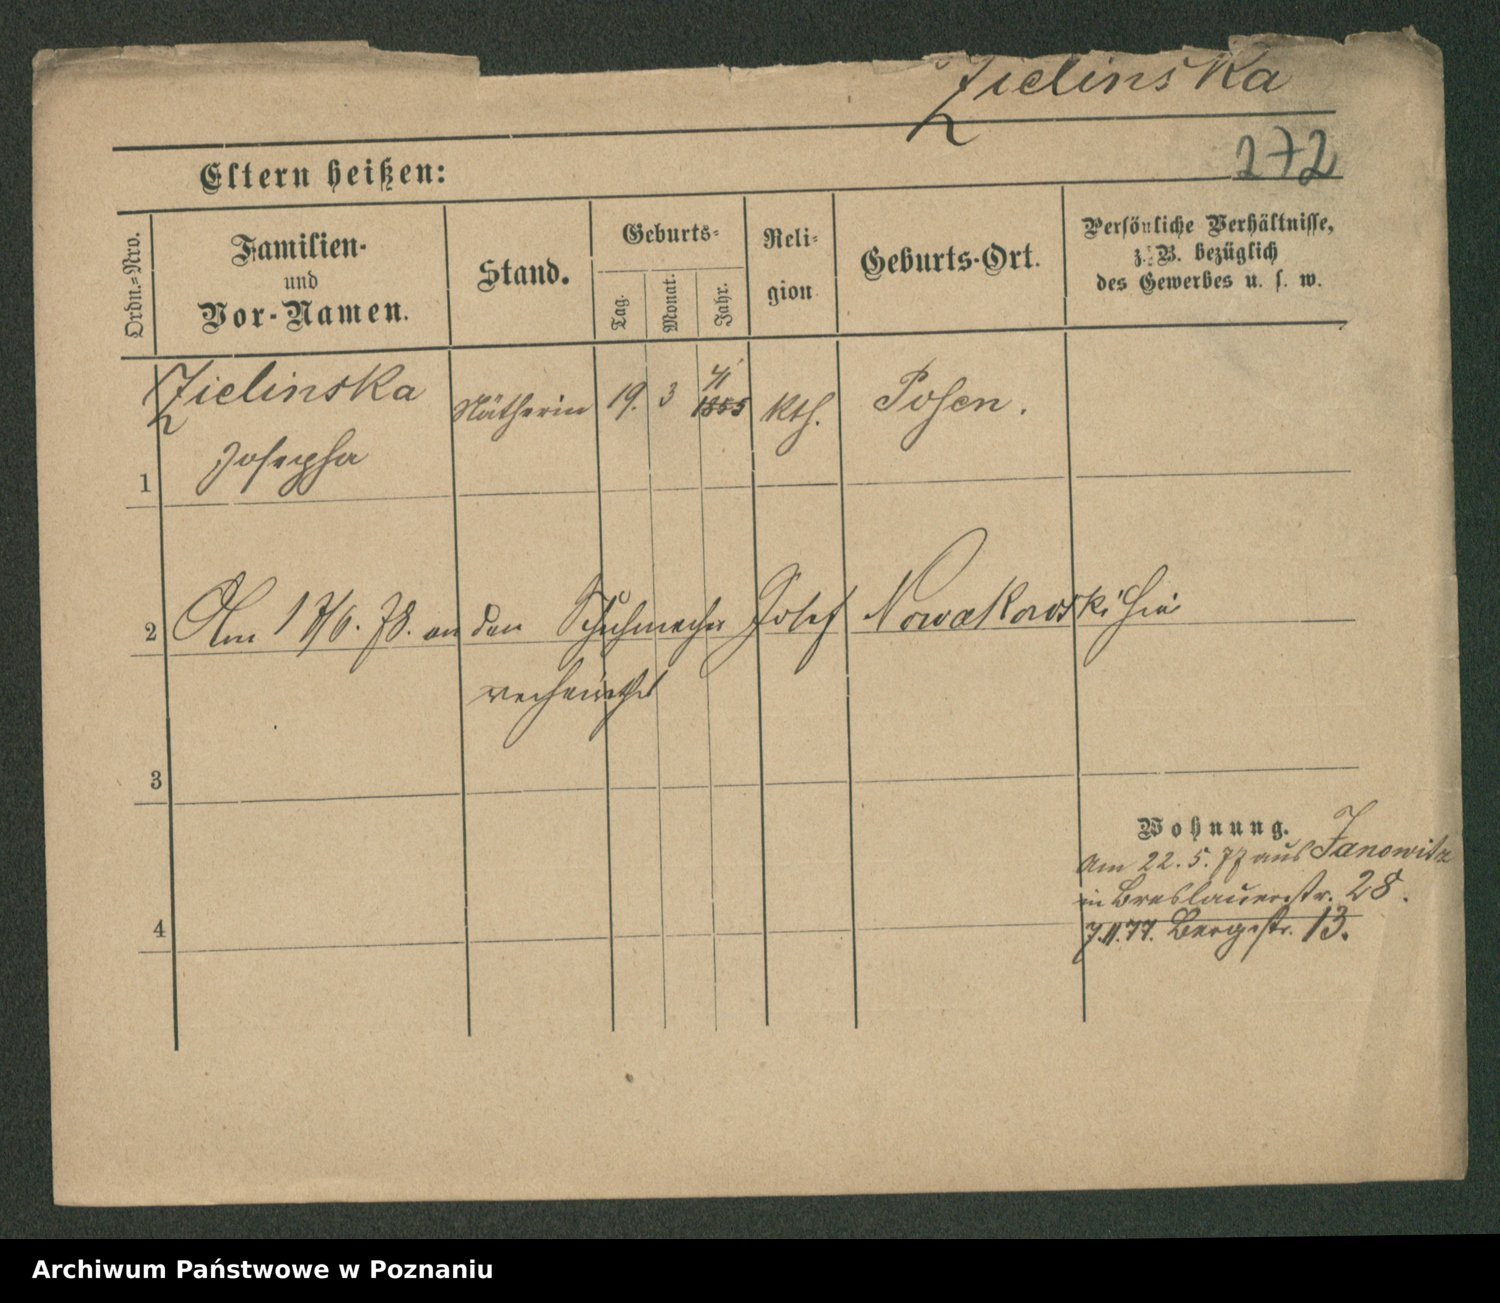 Zielinska
272
Eltern heißen:
Ordn.-Nro.
Familien-
und
Vor-Namen.
Stand.
Geburts-
Tag.
Monat.
Jahr.
Reli-
gion
Geburts-Ort.
Persönliche Verhältnisse,
z. B. bezüglich
des Gewerbes u. s. w.
1
Zielinska
Josepha
Nätherin
19.
3
1855
kth.
Posen.
2
Am 17/6. 78. an den Schuhmacher Josef Nowakowski hier
verheirathet
3
4
Wohnung.
Am 22. 5. 77 aus Janowitz
in Breslauerstr. 28.
7.11.77. Bergstr. 13.
Archiwum Państwowe w Poznaniu